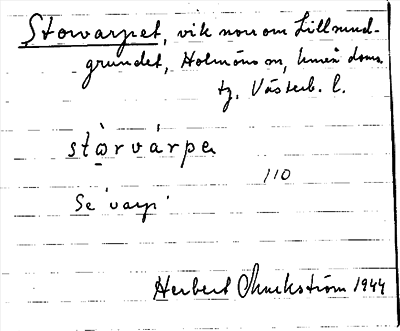 Storvarpet, vik norr om Lillrund-
grundet, Holmöns sn, Umeå doms.
tg. Västerb. l.
stὰ̣rvárpeͅ
110
Se varp
Herbert 1944